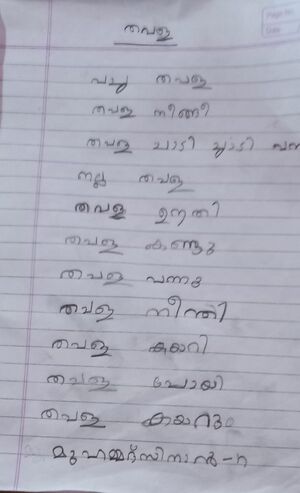 തവള
പച്ച തവള
തവള നീങ്ങി
തവള ചാടി ചാടി വന്ന
നല്ല തവള
തവള ഉന്തി
തവള കണ്ടു
തവള വന്നു
തവള നീന്തി
തവള കയറി
തവള പോയി
തവള കയറും
മുഹമ്മദ് സിനാൻ-പി